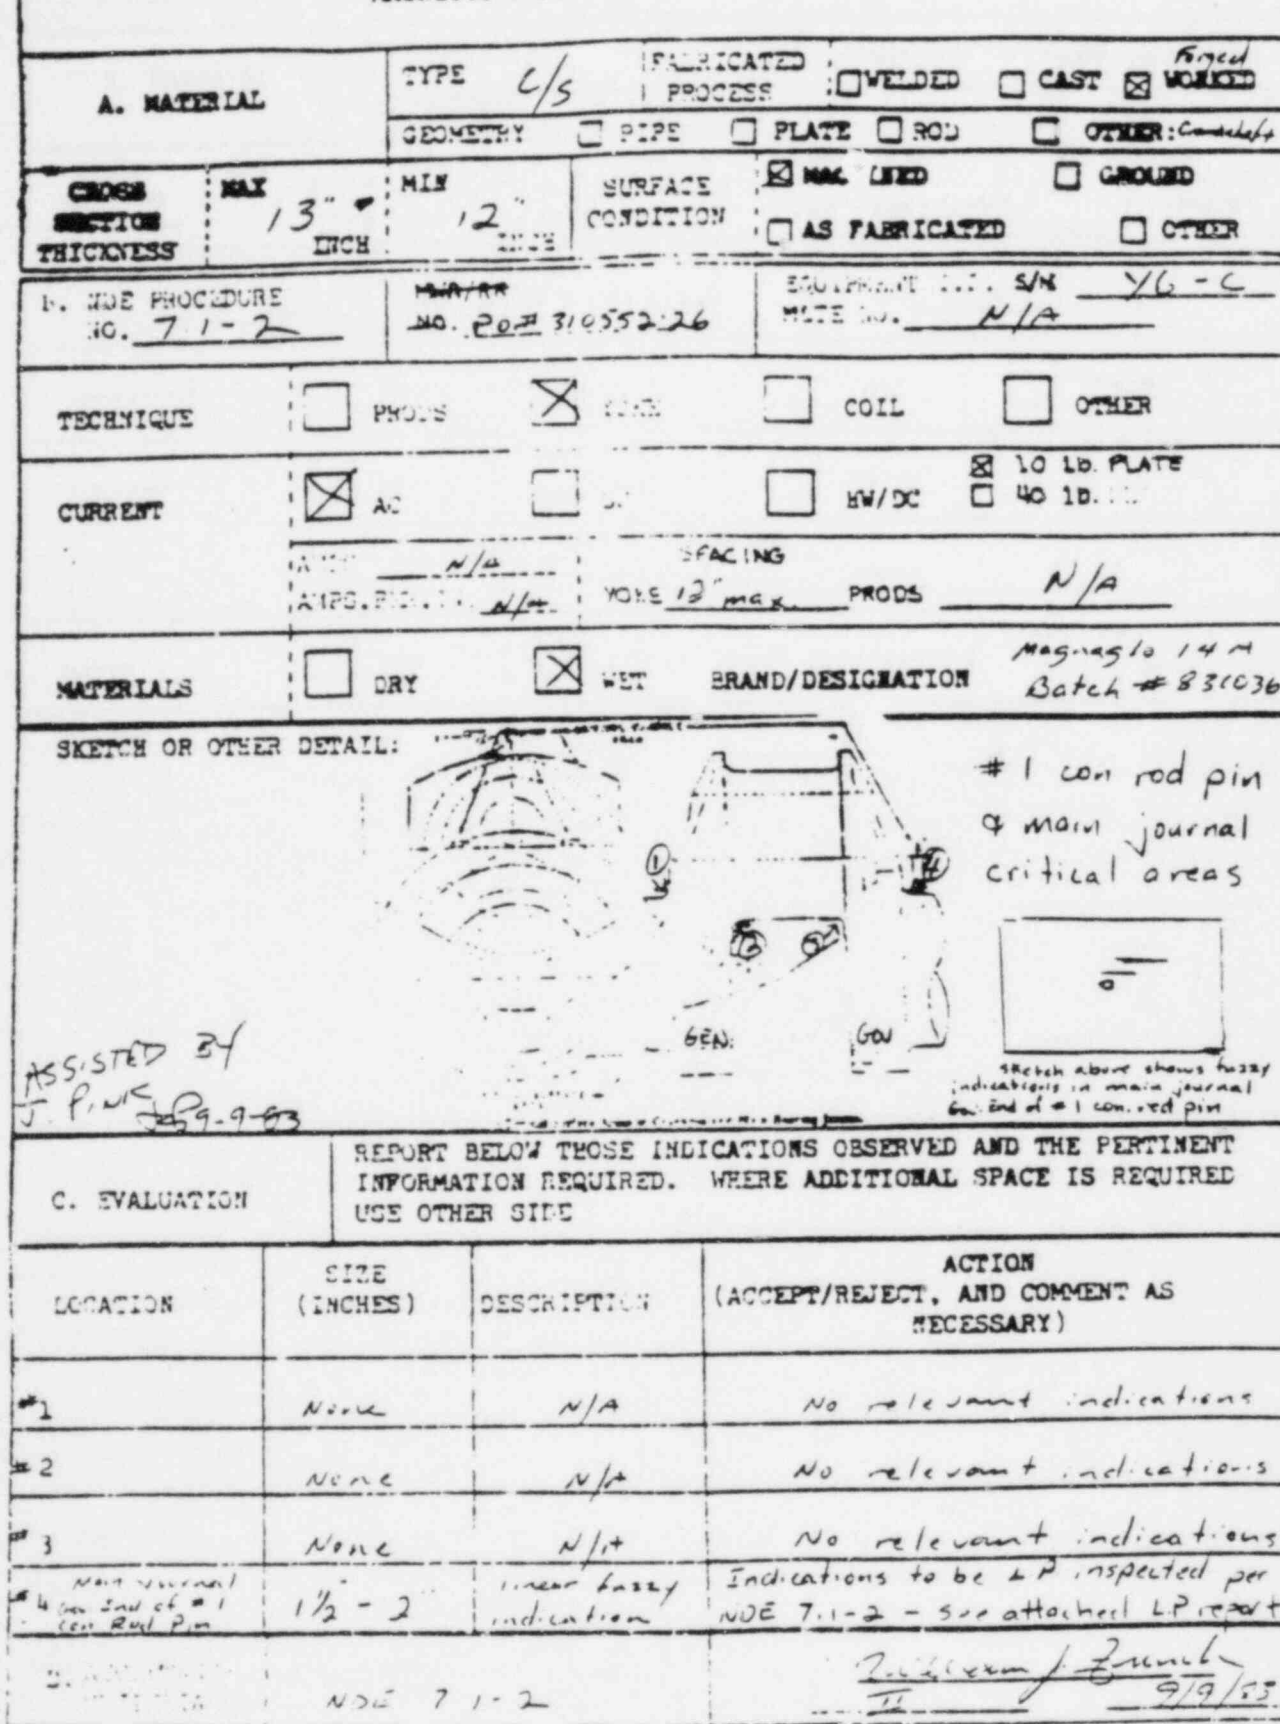 A. MATERIAL
TYPE C/S
FABRICATED PROCESS
☐ WELDED ☐ CAST ☒ WORKED
Forged
GEOMETRY ☐ PIPE ☐ PLATE ☐ ROD ☐ OTHER:
CROSS SECTION THICKNESS
MAX 13" INCH
MIN 12" INCH
SURFACE CONDITION
☒ ☐ GROUND
☐ AS FABRICATED ☐ OTHER
NDE PROCEDURE
NO. 7.1-2
MWR/RR
NO. PO# 310552.26
EQUIPMENT S/N Y6-C
MCTE NO. N/A
TECHNIQUE
☐ PRODS ☒ ☐ COIL ☐ OTHER
CURRENT
☒ AC ☐ ☐ HW/DC
☒ 10 lb. PLATE
☐ 40 lb.
N/A
N/A
SPACING
YOKE 12" max. PRODS N/A
MATERIALS
☐ DRY ☒ WET BRAND/DESIGNATION
Magnaglo 14 M
Batch # 831036
SKETCH OR OTHER DETAIL:
1
4
# 1 con rod pin
& main journal
critical areas
GEN.
GOV
sketch above shows fuzzy
indications in main journal
Gov. End of #1 con. rod pin
ASSISTED BY
9-9-83
C. EVALUATION
REPORT BELOW THOSE INDICATIONS OBSERVED AND THE PERTINENT
INFORMATION REQUIRED. WHERE ADDITIONAL SPACE IS REQUIRED
USE OTHER SIDE
LOCATION
SIZE
(INCHES)
DESCRIPTION
ACTION
(ACCEPT/REJECT, AND COMMENT AS
NECESSARY)
#1 None N/A No relevant indications
#2 None N/A No relevant indications
#3 None N/A No relevant indications
#4 Main Journal
Gov End of #1
Con Rod Pin
1½ - 2"
linear fuzzy
indication
Indications to be LP inspected per
NDE 7.1-2 - See attached LP report
NDE 7.1-2
II 9/9/83